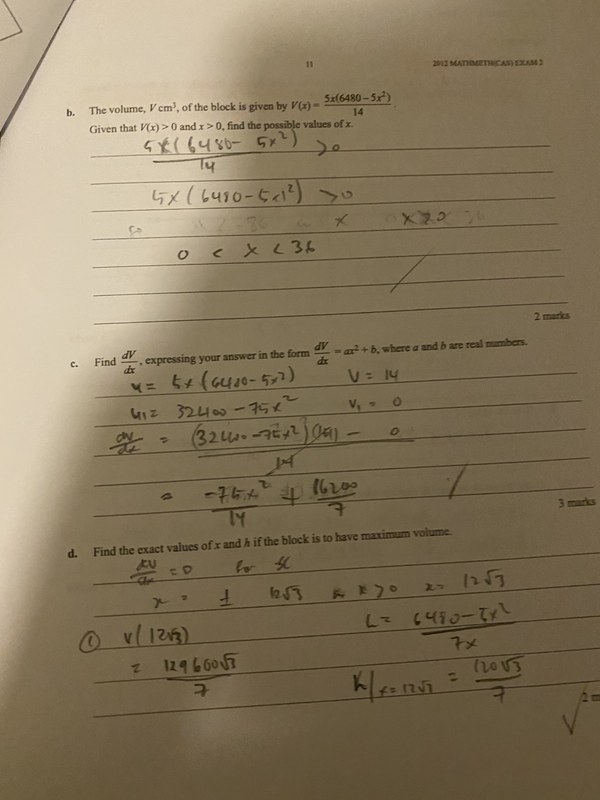 11 2012 MATHMETH(CAS) EXAM 2
b. The volume, V cm³, of the block is given by V(x) = 5x(6480 − 5x²)/14.
Given that V(x) > 0 and x > 0, find the possible values of x.
5x(6480 − 5x²)/14 > 0
5x(6480 − 5x²) > 0
x x>0
0 < x < 36
2 marks
c. Find dV/dx, expressing your answer in the form dV/dx = ax² + b, where a and b are real numbers.
u = 5x(6480 − 5x²) V = 14
u₁ = 32400 − 75x² V₁ = 0
dv/dx = (32400 − 75x²)(14) − 0
= −75x²/14 + 16200/7
3 marks
d. Find the exact values of x and h if the block is to have maximum volume.
dv/dx = 0 for x
x = ± 12√3 x>0 x = 12√3
① V(12√3) h = 6480 − 5x²/7x
= 129600√3/7 h|x=12√3 = 120√3/7
2 m